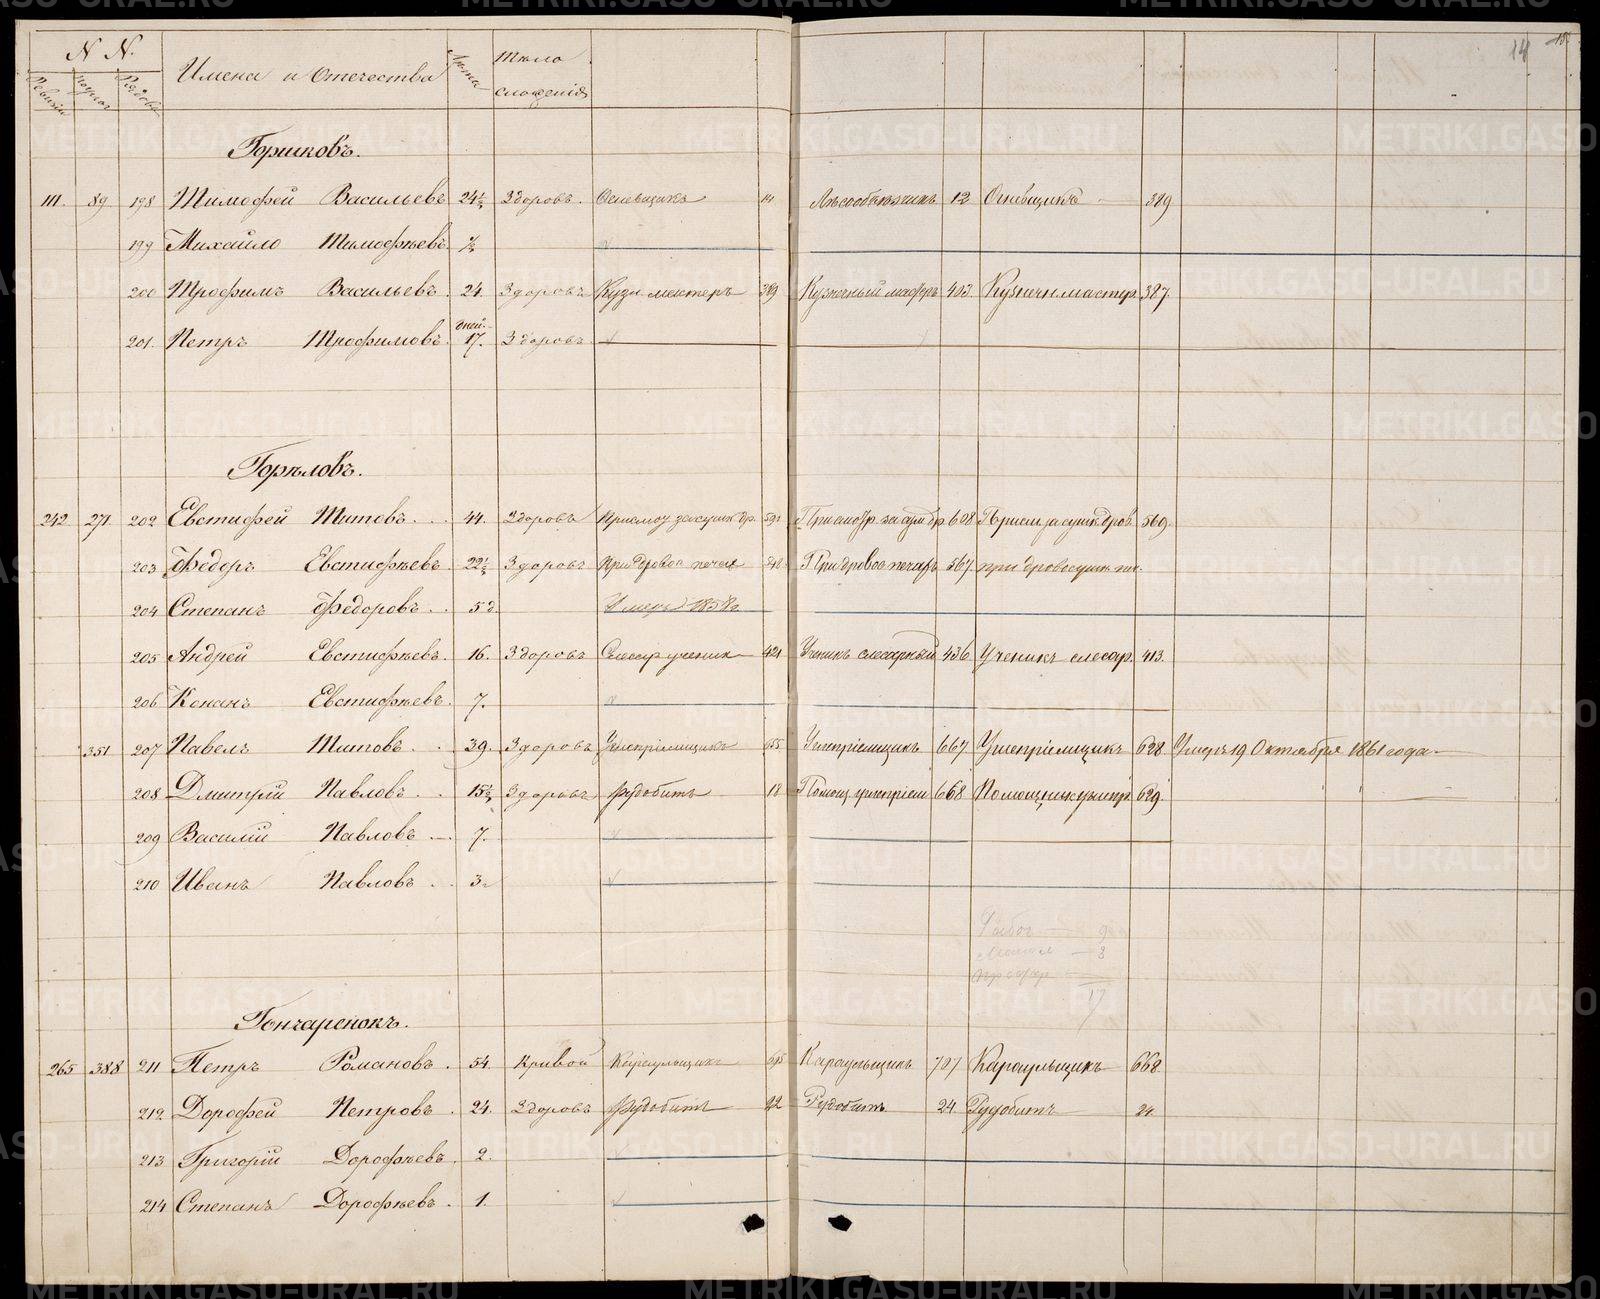 N N.
Ревизіи
Рядовы
Имена и Отечества
Лѣта
Тѣло
сложенія
14
Горшковъ.
111. 89 198 Тимофей Васильевъ 24½ Здоровъ. Огневщикъ 14 Лѣсообъѣзчикъ 12 Огневщикъ 389
199 Михайло Тимофѣевъ ½
200 Трофимъ Васильевъ. 24. Здоровъ Кузн мастеръ 389 Кузнечный мастеръ 403 Кузнечн мастер 387.
201. Петръ Трофимовъ. дней 17. Здоровъ
Горѣловъ.
242 271. 202 Евстифей Титовъ. 44. Здоровъ 608 569.
203 Федоръ Евстифѣевъ. 22½ Здоровъ При дровос печах При дровос печахъ 567 при дровосуш. печ.
204 Степанъ Федоровъ. 5 д. Умеръ 1858 г.
205 Андрей Евстифѣевъ. 16. Здоровъ Слесар ученик 421 Ученикъ слесарный 436 Ученикъ слесар. 413.
206 Кононъ Евстифѣевъ. 7.
351. 207 Павелъ Титовъ. 39. Здоровъ Углепріемщикъ 655 Углепріемщикъ 667 Углепріемщикъ 628 Умеръ 19 Октября 1861 года
208 Дмитрій Павловъ. 15½ Здоровъ Рудобитъ 18 Помощ углепріем 668 Помощник углепр. 629.
209 Василій Павловъ. 7.
210 Иванъ Павловъ. 3
Рабоч — 9
Малол — 8
17
Гончаренокъ.
265 388 211 Петръ Романовъ. 54. Кривой Караульщикъ 695 Караульщикъ 707 Караульщикъ 668
212. Дорофей Петровъ. 24. Здоровъ Рудобитъ 22 Рудобитъ 24 Рудобитъ 24.
213 Григорій Дорофѣевъ. 2.
214 Степанъ Дорофѣевъ. 1.
METRIKI.GASO-URAL.RU